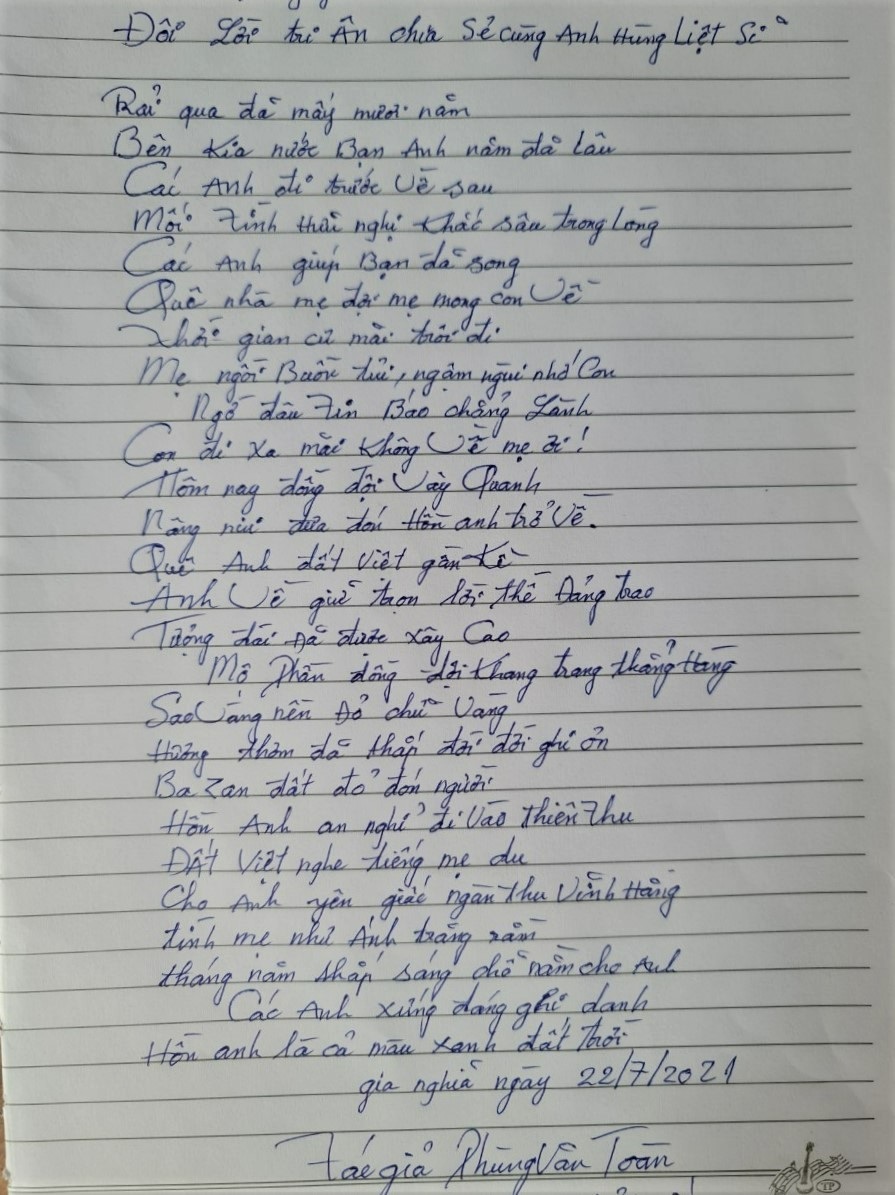 Đôi Lời tri Ân chia Sẻ cùng Anh Hùng Liệt Sĩ
Rải qua đã mấy mươi năm
Bên Kia nước Bạn Anh nằm đã lâu
Các Anh đi trước Về sau
Mối Tình Hữu nghị Khắc sâu trong lòng
Các Anh giúp Bạn đã song
Quê nhà mẹ đợi mẹ mong con Về
Thời gian cứ mãi trôi đi
Mẹ ngồi Buồn tủi, ngậm ngùi nhớ Con
Ngờ đâu Tin Báo chẳng Lành
Con đi xa mãi Không Về mẹ ơi!
Hôm nay đồng đội Vây Quanh
Nâng niu đưa đón Hồn anh trở Về.
Quê Anh đất Việt gần Kề
Anh Về giữ trọn lời thề Đảng trao
Tượng đài Đã được xây Cao
Mộ Phần đồng đội Khang trang thẳng Hàng
Sao Vàng nền Đỏ chữ Vàng
Hương thơm đã thắp đời đời ghi ơn
Ba Zan đất đỏ đón người
Hồn Anh an nghỉ đi Vào Thiên Thu
ĐẤt Việt nghe tiếng mẹ du
Cho Anh yên giấc ngàn Thu Vĩnh Hằng
tình mẹ như Ánh trăng rằm
tháng năm thắp sáng chỗ nằm cho Anh
Các Anh xứng đáng ghi danh
Hồn anh là cả màu xanh đất Trời
gia nghĩa ngày 22/7/2021
Tác giả Phùng Văn Toàn
TP